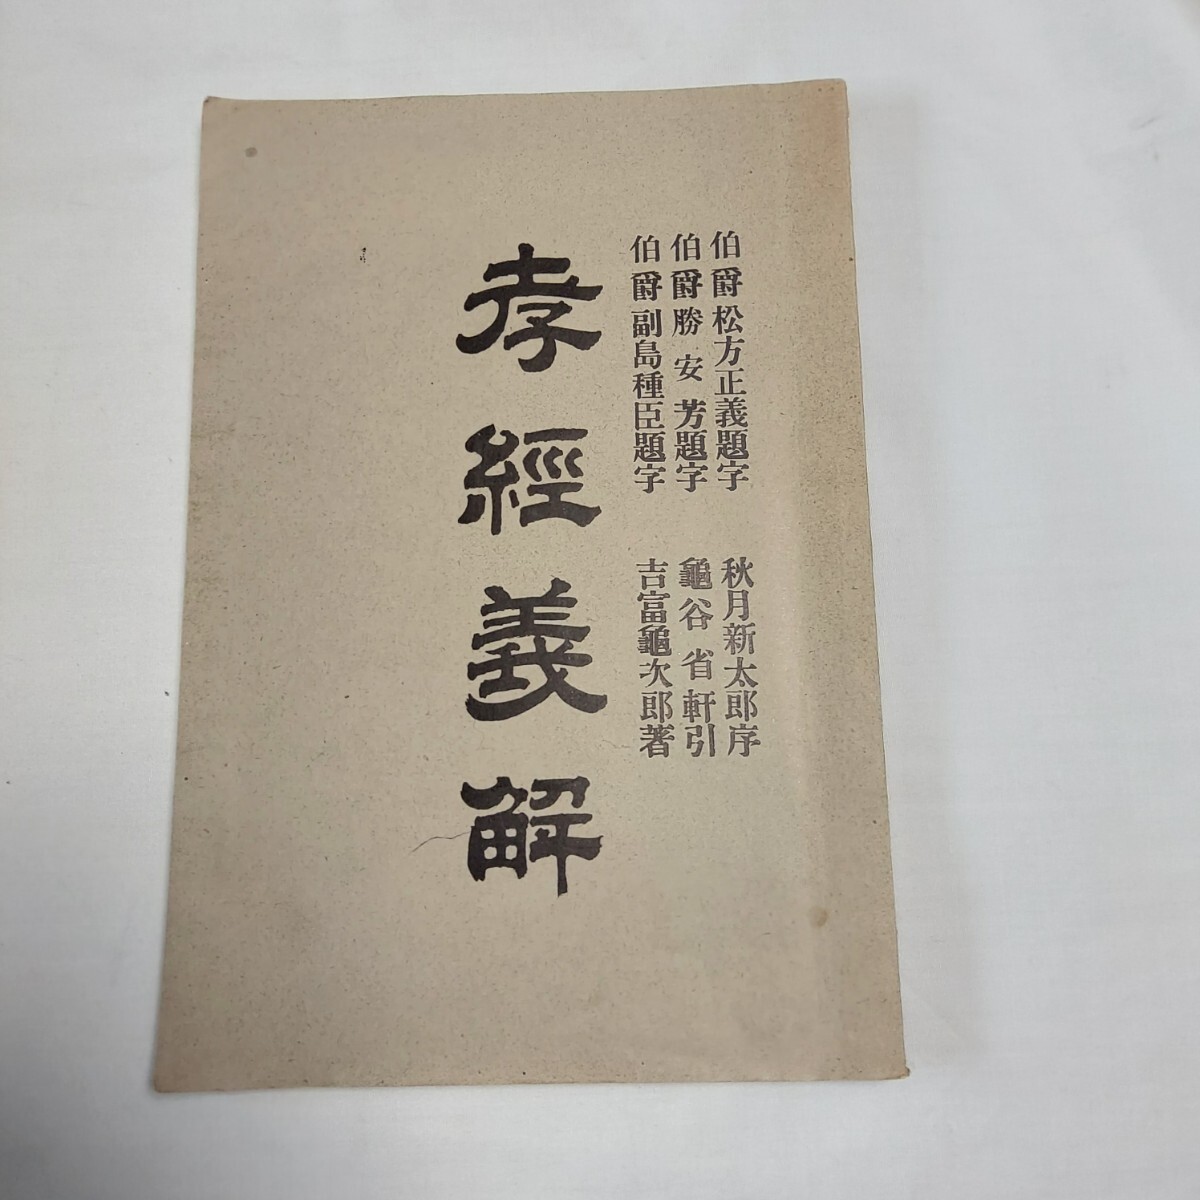 伯爵松方正義題字
伯爵勝安芳題字
伯爵副島種臣題字
秋月新太郎序
龜谷省軒引
吉富龜次郎著
孝經義解